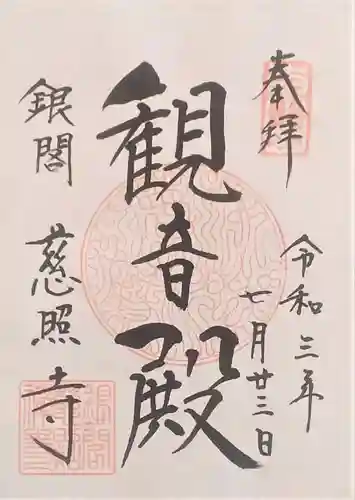 奉拝
令和三年
七月廿三日
観音殿
銀閣
慈照寺